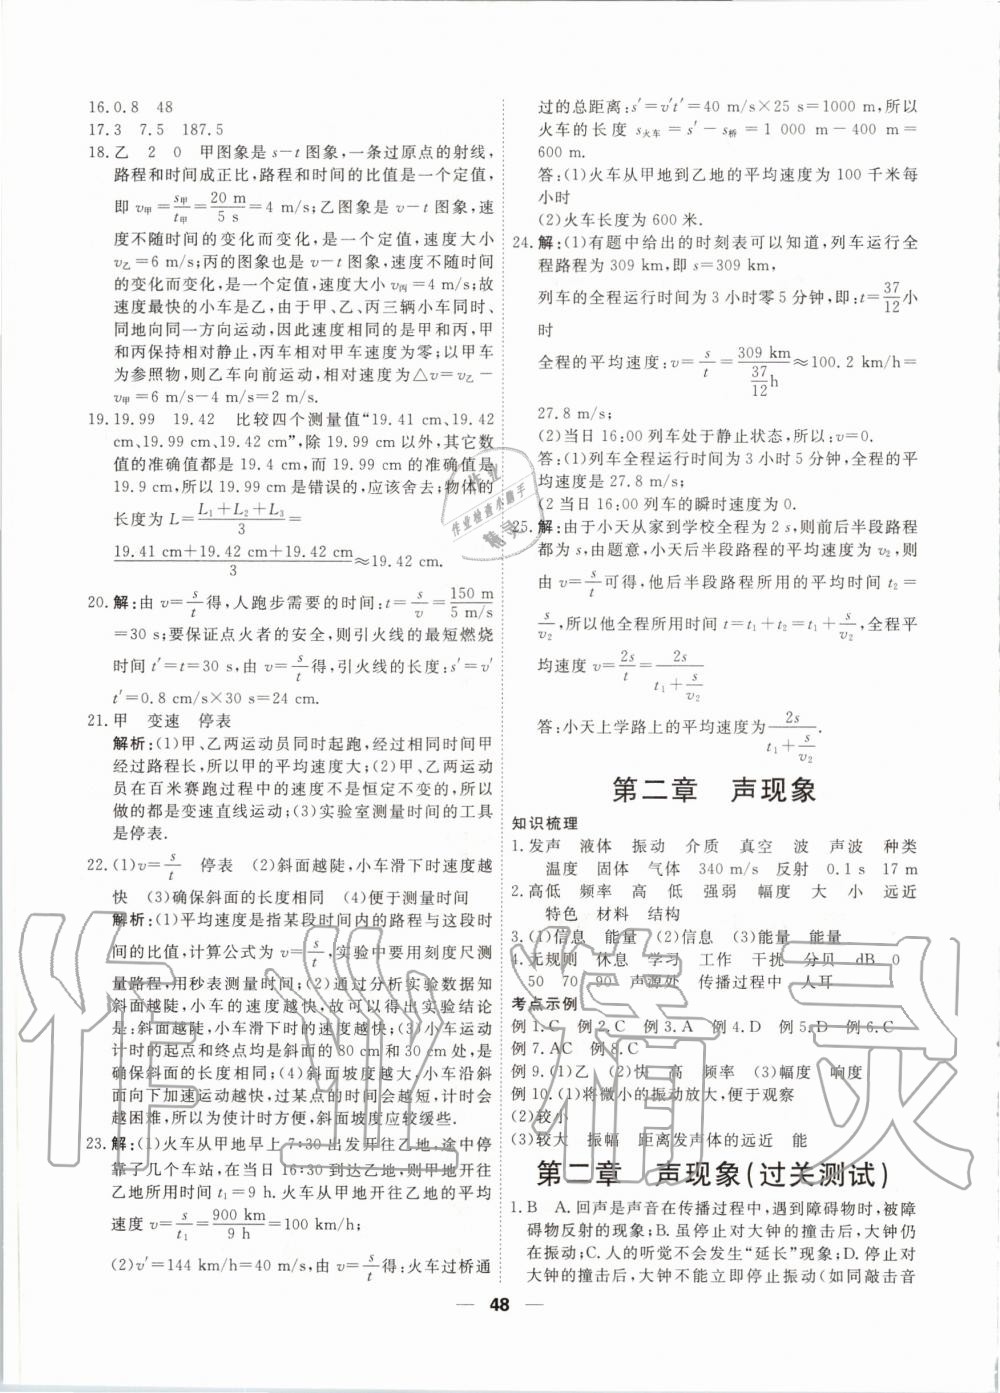 16.0.8　48
17.3　7.5　187.5
18.乙　2　0　甲图象是 s－t 图象，一条过原点的射线，
路程和时间成正比，路程和时间的比值是一个定值，
即 v甲＝s甲/t甲＝20 m/5 s＝4 m/s；乙图象是 v－t 图象，速
度不随时间的变化而变化，是一个定值，速度大小
v乙＝6 m/s；丙的图象也是 v－t 图象，速度不随时间
的变化而变化，是一个定值，速度大小 v丙＝4 m/s；故
速度最快的小车是乙，由于甲、乙、丙三辆小车同时、
同地向同一方向运动，因此速度相同的是甲和丙，甲
和丙保持相对静止，丙车相对甲车速度为零；以甲车
为参照物，则乙车向前运动，相对速度△v＝v乙－
v甲＝6 m/s－4 m/s＝2 m/s.
19.19.99　19.42　比较四个测量值“19.41 cm、19.42
cm、19.99 cm、19.42 cm”，除 19.99 cm 以外，其它数
值的准确值都是 19.4 cm，而 19.99 cm 的准确值是
19.9 cm，所以 19.99 cm 是错误的，应该舍去；物体的
长度为 L＝(L1＋L2＋L3)/3＝
(19.41 cm＋19.42 cm＋19.42 cm)/3≈19.42 cm.
20.解：由 v＝s/t得，人跑步需要的时间：t＝s/v＝150 m/5 m/s
＝30 s；要保证点火者的安全，则引火线的最短燃烧
时间 t′＝t＝30 s，由 v＝s/t得，引火线的长度：s′＝v′
t′＝0.8 cm/s×30 s＝24 cm.
21.甲　变速　停表
解析：(1)甲、乙两运动员同时起跑，经过相同时间甲
经过路程长，所以甲的平均速度大；(2)甲、乙两运动
员在百米赛跑过程中的速度不是恒定不变的，所以
做的都是变速直线运动；(3)实验室测量时间的工具
是停表.
22.(1)v＝s/t　停表　(2)斜面越陡，小车滑下时速度越
快　(3)确保斜面的长度相同　(4)便于测量时间
解析：(1)平均速度是指某段时间内的路程与这段时
间的比值，计算公式为 v＝s/t，实验中要用刻度尺测
量路程，用秒表测量时间；(2)通过分析实验数据知
斜面越陡，小车的速度越快；故可以得出实验结论
是：斜面越陡，小车滑下时的速度越快；(3)小车运动
计时的起点和终点均是斜面的 80 cm 和 30 cm 处，是
确保斜面的长度相同；(4)斜面坡度越大，小车沿斜
面向下加速运动越快，过某点的时间会越短，计时会
越困难，所以为使计时方便，斜面坡度应较缓些.
23.解：(1)火车从甲地早上 7:30 出发开往乙地，途中停
靠了几个车站，在当日 16:30 到达乙地，则甲地开往
乙地所用时间 t1＝9 h.火车从甲地开往乙地的平均
速度 v＝s/t1＝900 km/9 h＝100 km/h；
(2)v′＝144 km/h＝40 m/s，由 v＝s/t得：火车过桥通
过的总距离：s′＝v′t′＝40 m/s×25 s＝1000 m，所以
火车的长度 s火车＝s′－s桥＝1 000 m－400 m＝
600 m.
答：(1)火车从甲地到乙地的平均速度为 100 千米每
小时
(2)火车长度为 600 米.
24.解：(1)有题中给出的时刻表可以知道，列车运行全
程路程为 309 km，即 s＝309 km，
列车的全程运行时间为 3 小时零 5 分钟，即：t＝37/12小
时
全程的平均速度：v＝s/t＝309 km/(37/12 h)≈100.2 km/h＝
27.8 m/s；
(2)当日 16:00 列车处于静止状态，所以：v＝0.
答：(1)列车全程运行时间为 3 小时 5 分钟，全程的平
均速度是 27.8 m/s；
(2 当日 16:00 列车的瞬时速度为 0.
25.解：由于小天从家到学校全程为 2 s，则前后半段路程
都为 s，由题意，小天后半段路程的平均速度为 v2，则
由 v＝s/t可得，他后半段路程所用的平均时间 t2＝
s/v2，所以他全程所用时间 t＝t1＋t2＝t1＋s/v2，全程平
均速度 v＝2s/t＝2s/(t1＋s/v2)
答：小天上学路上的平均速度为2s/(t1＋s/v2).
第二章　声现象
知识梳理
1.发声　液体　振动　介质　真空　波　声波　种类
温度　固体　气体　340 m/s　反射　0.1 s　17 m
2.高低　频率　高　低　强弱　幅度　大　小　远近
特色　材料　结构
3.(1)信息　能量　(2)信息　(3)能量　能量
4.无规则　休息　学习　工作　干扰　分贝　dB　0
50　70　90　声源处　传播过程中　人耳
考点示例
例 1.C　例 2.C　例 3.A　例 4.D　例 5.D　例 6.C
例 7.AC　例 8.C
例 9.(1)乙　(2)快　高　频率　(3)幅度　响度
例 10.(1)将微小的振动放大，便于观察
(2)较小
(3)较大　振幅　距离发声体的远近　能
第二章　声现象(过关测试)
1.B　A.回声是声音在传播过程中，遇到障碍物时，被障
碍物反射的现象；B.虽停止对大钟的撞击后，大钟仍
在振动；C.人的听觉不会发生“延长”现象；D.停止对
大钟的撞击后，大钟不能立即停止振动(如同敲击音
48
作业精灵
作业
作业检查小助手
精灵